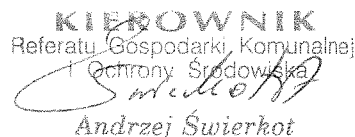 KIEROWNIK
Referatu Gospodarki Komunalnej
i Ochrony Środowiska
Andrzej Świerkot